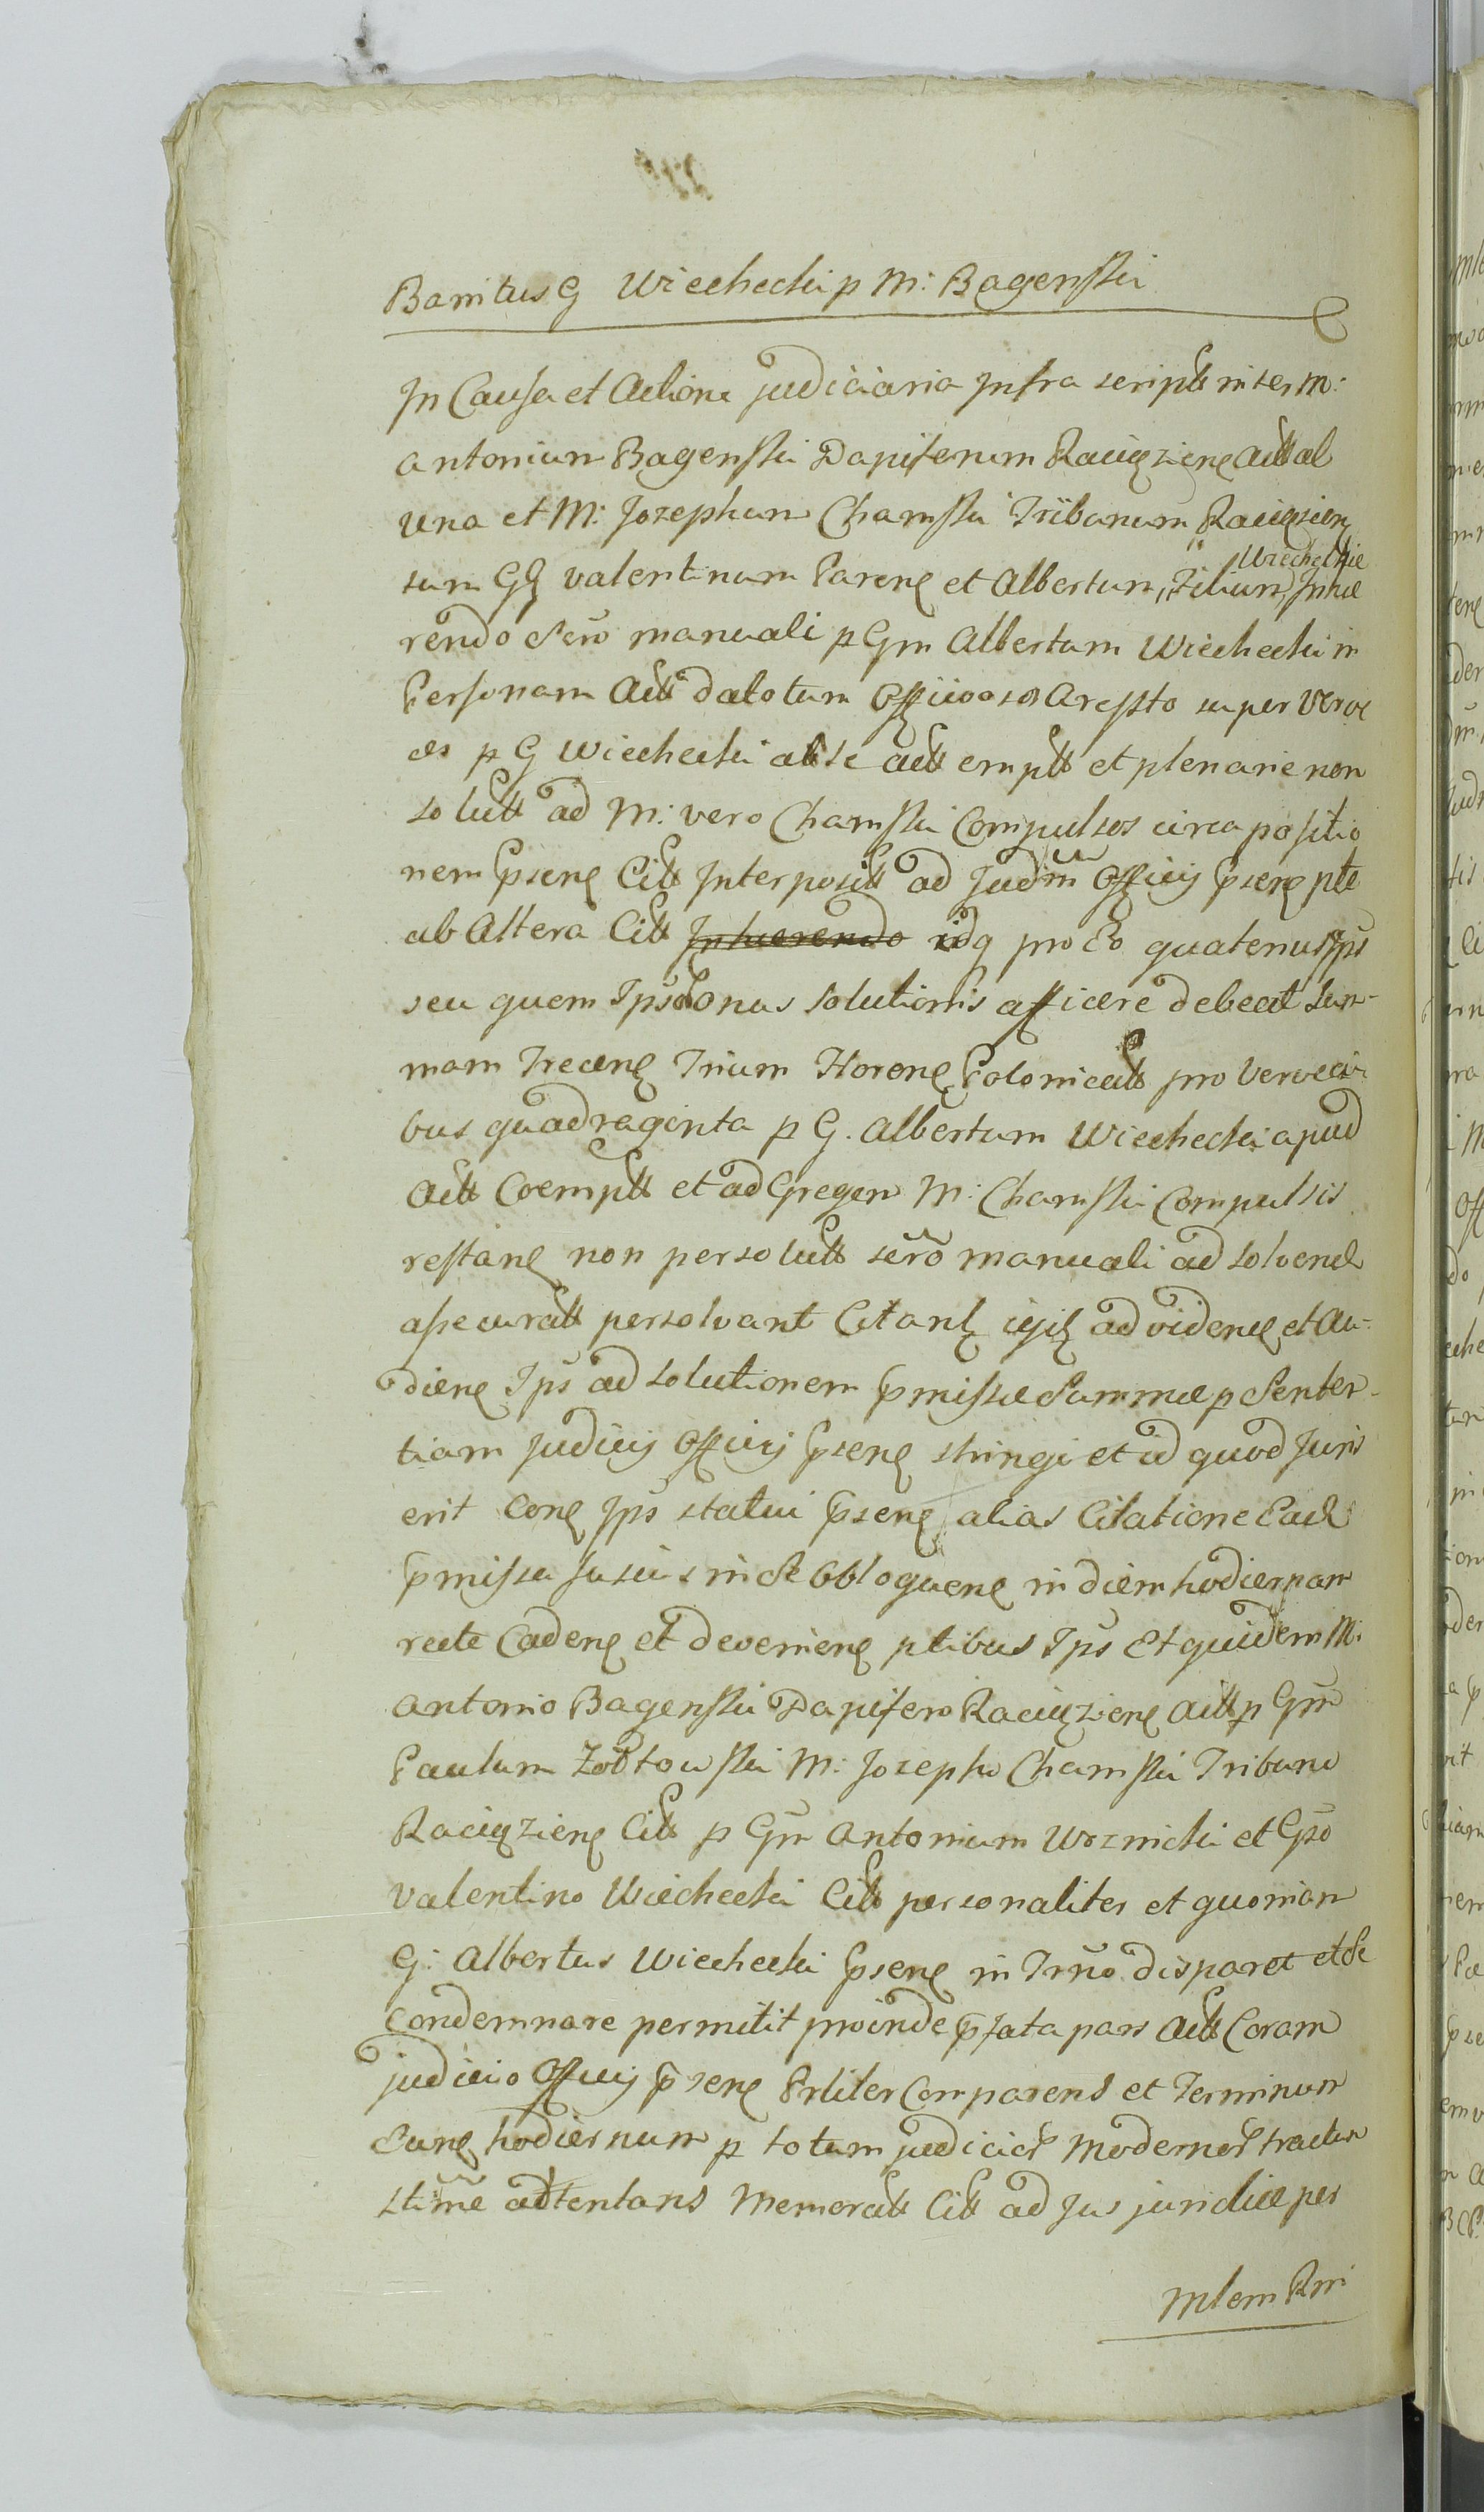 Banitus G Wiechecki p M: Bagenski
In Causa et Actione judiciaria Infra script inter M:
Antonium Bagenski Dapiferum Raciązienę Actt ab
una et M: Josephum Chamski Tribunum Raciązien
tum GG Valentinum Parenę et Albertum, Filium, Inhæ
Wiecheckie
rendo Scro manuali p Gm Albertum Wiechecki in
Personam Actt dato tum Officioso Aressto super Verve
ces p G Wiechecki abste actt emptt et plenarie non
solutt ad M: vero Chamski Compulsos circa positio
nem Psenę Citt Interposit ad Judm Officij Psenę pte
ab Altera Citt Inhaerendo idq pro Eo quatenus Ips
seu quem Ips Onus Solutionis afficere debeat Sum-
mam Trecenę Trium Florenę Polonicatt pro Verveci
bus quadraginta p G. Albertum Wiechecki apud
Actt Coemptt et ad Gregem M: Chamski Compulsis
restanę non persolutt scro manuali ad solvend
assecuratt persolvant Citant igit ad videnę et Au-
dienę Ips ad solutionem Pmissæ Summæ p Senten-
tiam Judicij Officij Psenę stringi et id quod Juris
erit conę Ips statui Psenę alias Citatione Ead
Pmissa fusius in Se obloquenę in diem hodiernam
recte Cadenę et devenienę ptibus Ips Et quidem M:
Antonio Bagenski Dapifero Raciązienę Actt p Gm
Paulum Zołtowski M: Josepho Chamski Tribuno
Raciązienę Citt p Gm Antonium Woznicki et Gso
Valentino Wiechecki Citt personaliter et quoniam
G: Albertus Wiechecki Psenę in Trno disparet et se
Condemnare permitit proinde Pfata pars Actt Coram
judicio Officij Psenę Prliter Comparens et Terminum
Sunę hodiernum p totum judicior modernor tractum
ltime adtentans Memoratt Citt ad Jus juridice per
Mlem Rni